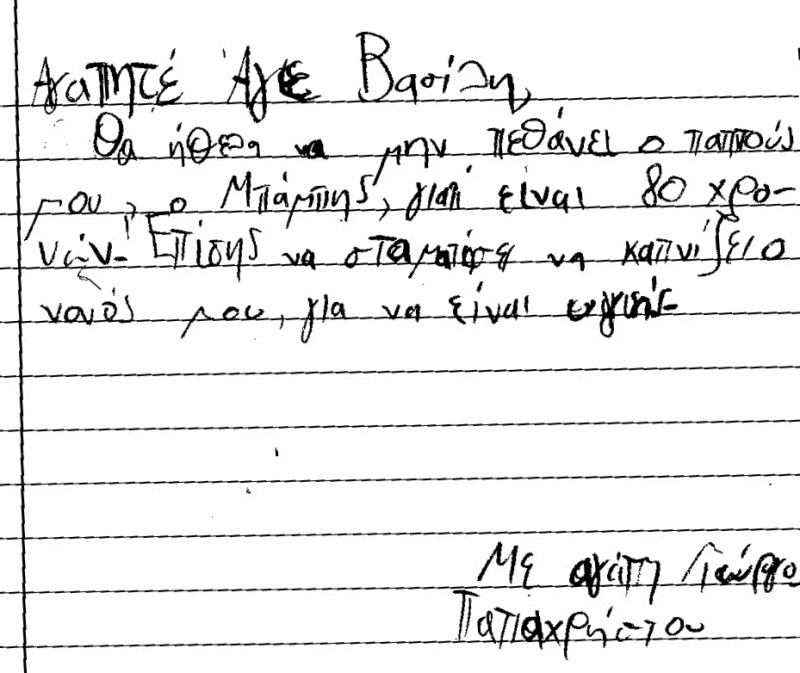 Αγαπητέ Άγιε Βασίλη
Θα ήθελα να μην πεθάνει ο παππούς
μου, ο Μπάμπης, γιατί είναι 80 χρο-
νών. Επίσης να σταματήσει να καπνίζει ο
νονός μου, για να είναι υγιής.
Με αγάπη Γιώργο
Παπαχρήστου